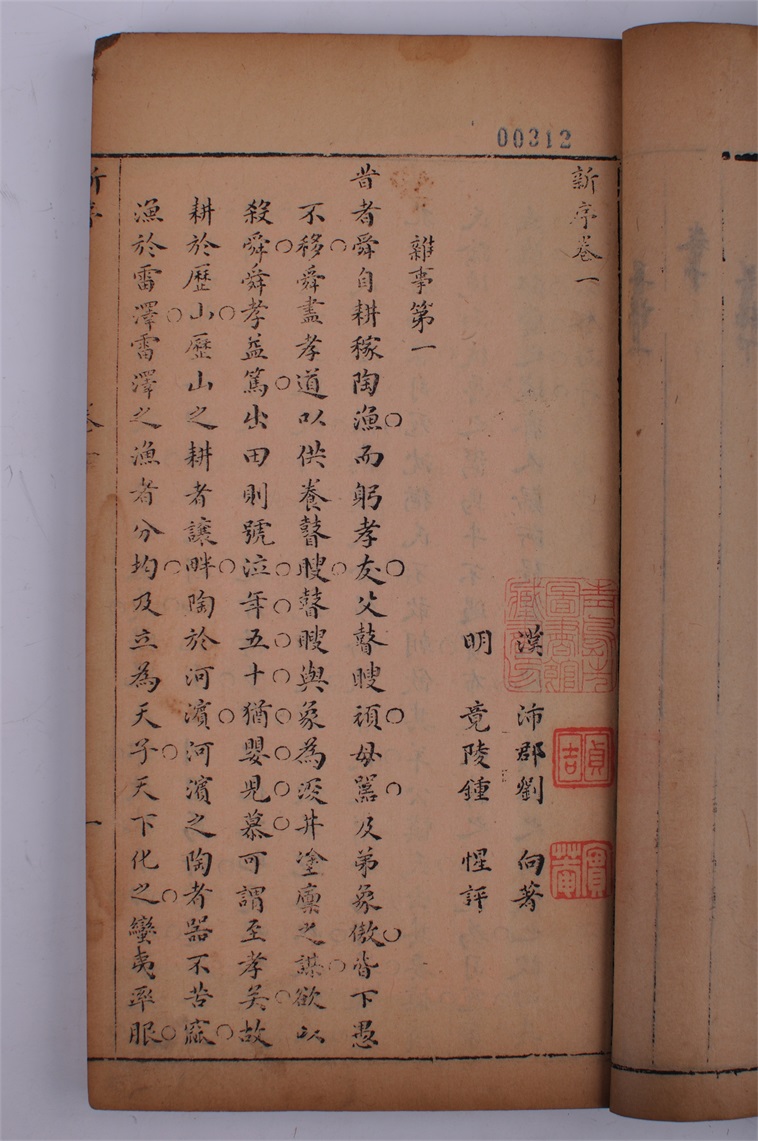 00312
新序卷一
漢 沛郡劉 向著
明 竟陵鍾 惺評
雜事第一
昔者舜自耕稼陶漁而躬孝友父瞽瞍頑母嚚及弟象傲皆下愚
不移舜盡孝道以供養瞽瞍瞽瞍與象為浚井塗廩之謀欲以
殺舜舜孝益篤出田則號泣年五十猶嬰兒慕可謂至孝矣故
耕於歷山歷山之耕者讓畔陶於河濱河濱之陶者器不苦窳
漁於雷澤雷澤之漁者分均及立為天子天下化之蠻夷率服
新序
卷一
一
貞吉